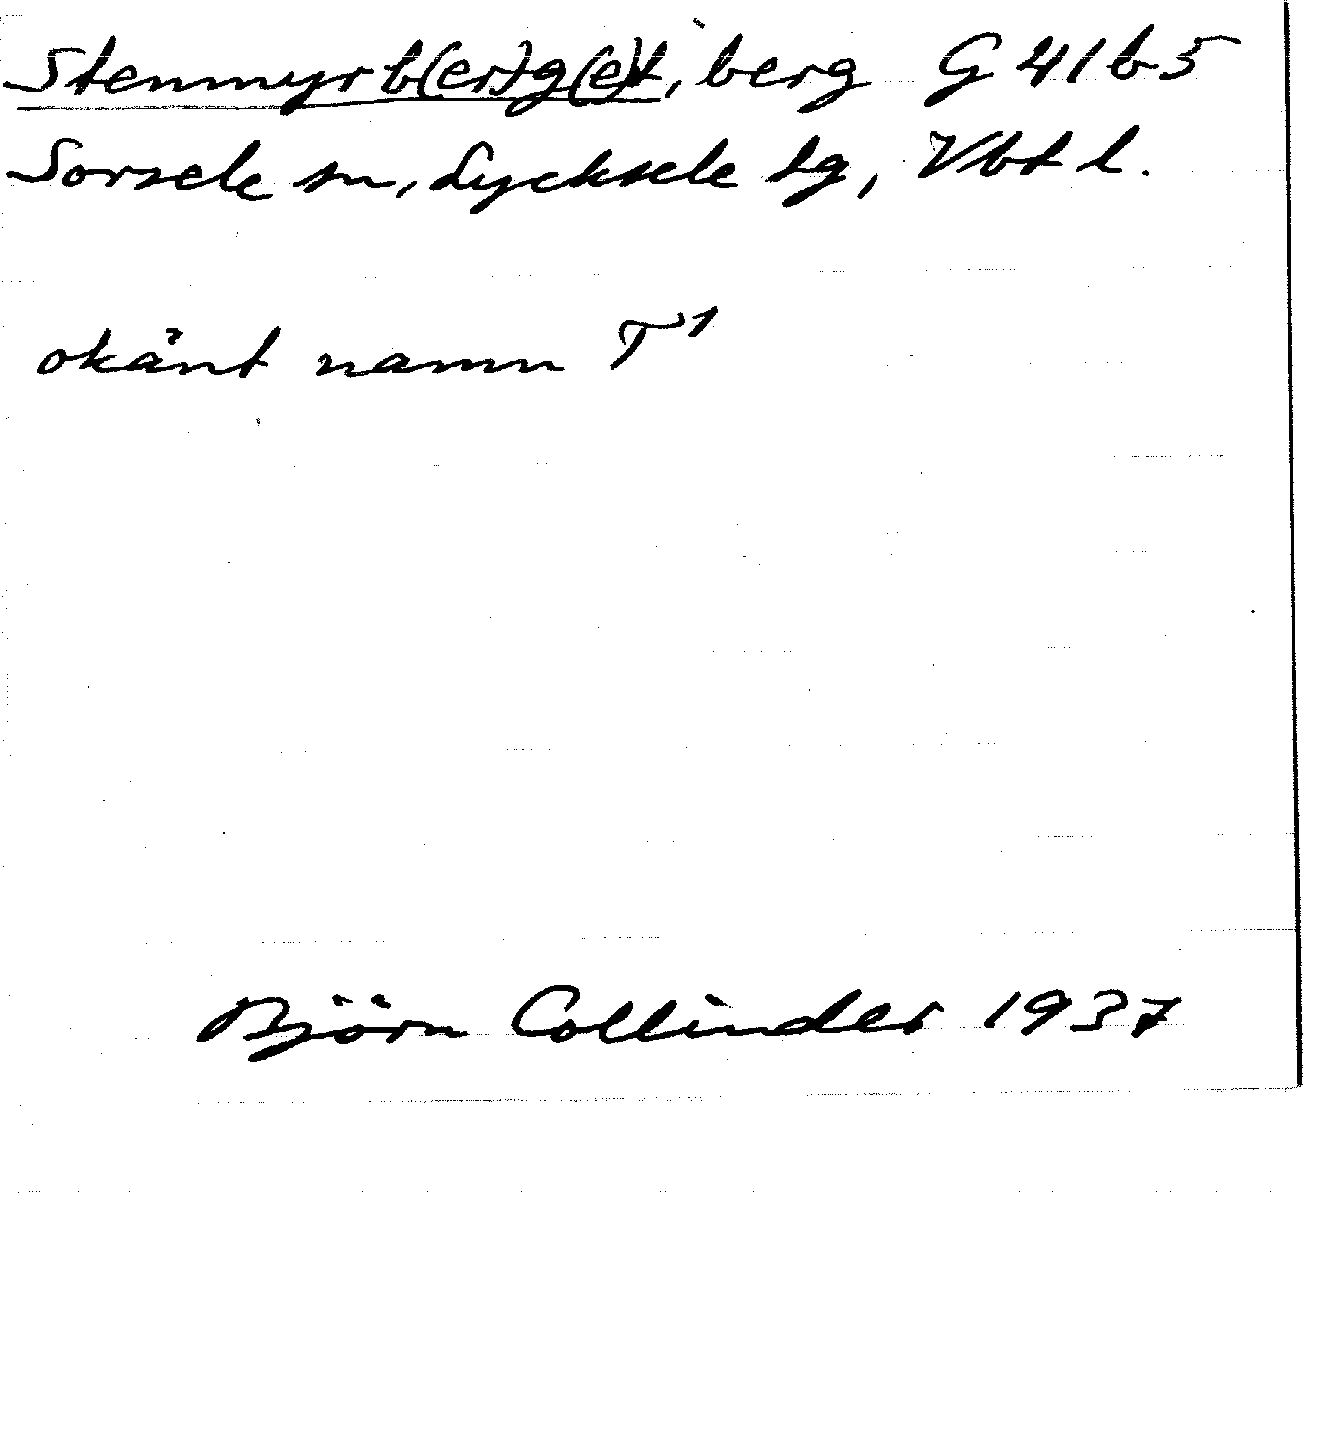 Stenmyrb(er)g(e)t, berg G 41 b 5
Sorsele sn, Lycksele lg, Vbt l.
okänt namn T1
Björn Collinder 1937